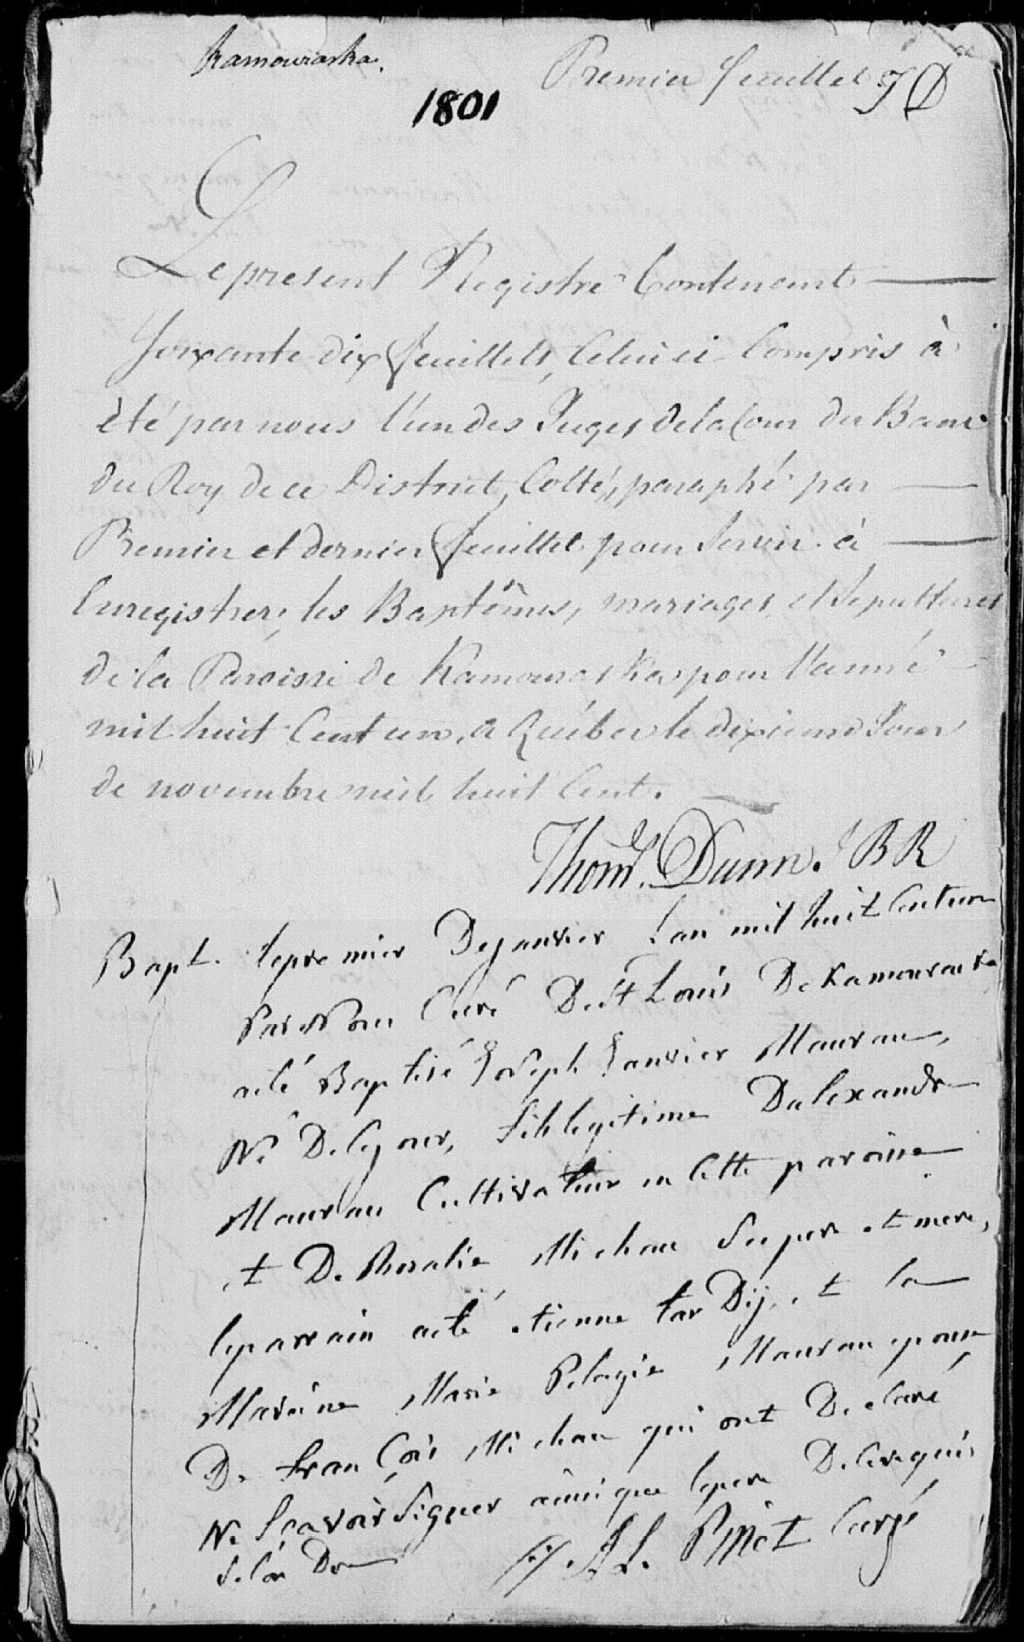 Kamouraska.
Premier feuillet TD
1801
Le present Registre Contenant
Soixante dix feuillets, Celui ci Compris à
été par nous l'un des Juges de la Cour du Banc
du Roy de ce District, Cotté, paraphé par
Premier et dernier feuillet pour Servir à
Enregistrer, les Baptêmes, mariages et Sepultures
de la Paroisse de Kamouraska pour l'anné
mil huit Cent un, a Québec le dixieme Jour
de novembre mil huit Cent.
Thom. Dunn. JBR
Bapt. le premier De janvier L'an mil huit Cent un
Par Nous Curé De St Louis De Kamouraska
a été Baptisé Joseph Janvier Maurau,
Né De Ce jour, fils legitime D'alexandre
Maurau Cultivateur en Cette paroisse
et De Rosalie Michau Ses pere et mere,
le parrain a été etienne tarDif, et la
Maraine Marie Pelagie Maurau epouse
De franCois Michau qui ont Declaré
Ne Scavoir Signer ainsi que le pere De Ce requis
Selon
J. A L. Pinet Curé